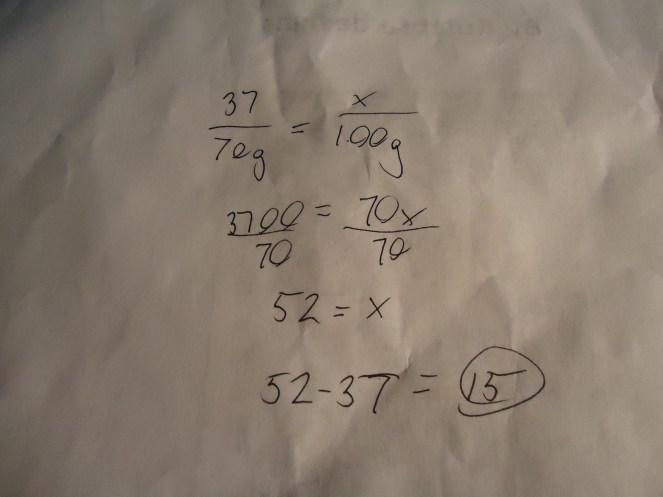 37/70g = x/100g
3700/70 = 70x/70
52 = x
52-37 = 15